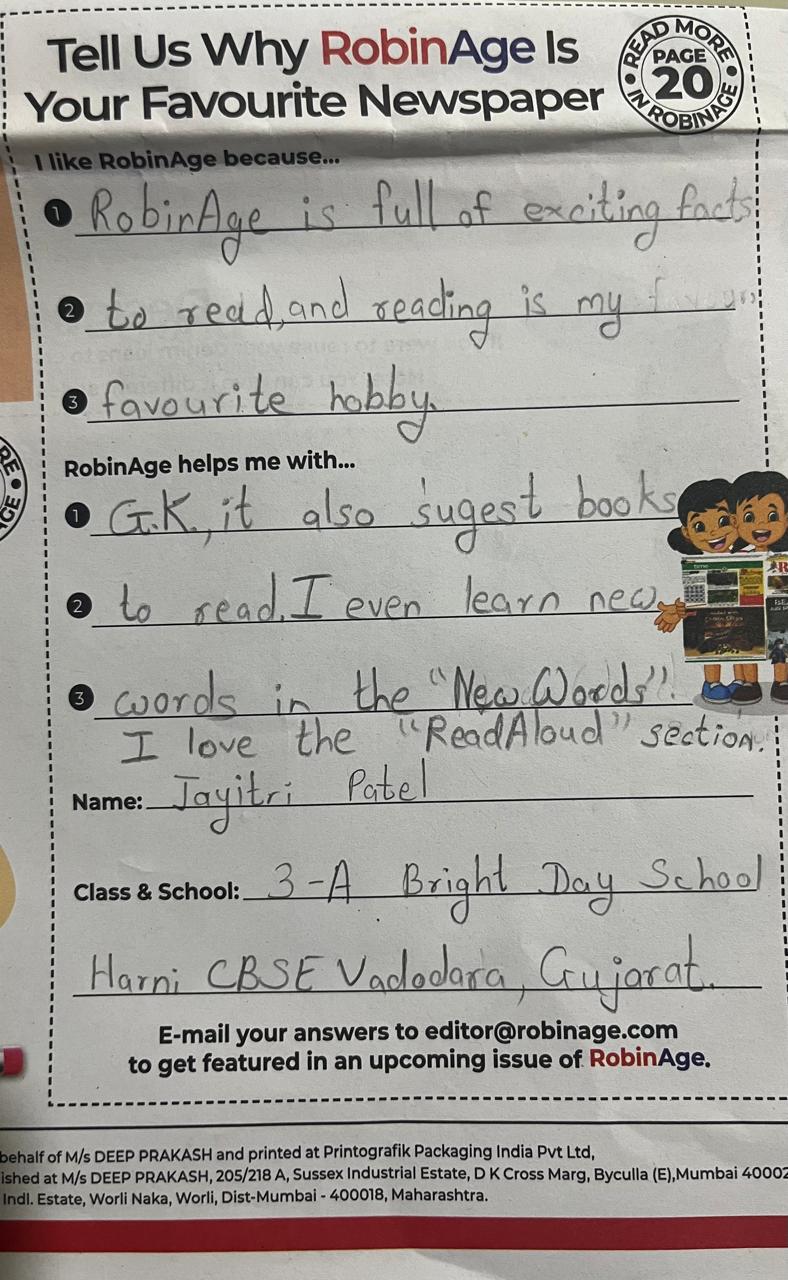 Tell Us Why RobinAge Is
Your Favourite Newspaper
READ MORE
PAGE
20
IN ROBINAGE
I like RobinAge because...
1 RobinAge is full of exciting facts
2 to read, and reading is my
3 favourite hobby.
RobinAge helps me with...
1 G.K., it also sugest books
2 to read. I even learn new
3 words in the "New Words".
I love the "ReadAloud" section.
Name: Jayitri Patel
Class & School: 3-A Bright Day School
Harni CBSE Vadodara, Gujarat.
E-mail your answers to editor@robinage.com
to get featured in an upcoming issue of RobinAge.
behalf of M/s DEEP PRAKASH and printed at Printografik Packaging India Pvt Ltd,
ished at M/s DEEP PRAKASH, 205/218 A, Sussex Industrial Estate, D K Cross Marg, Byculla (E),Mumbai 40002
Indl. Estate, Worli Naka, Worli, Dist-Mumbai - 400018, Maharashtra.